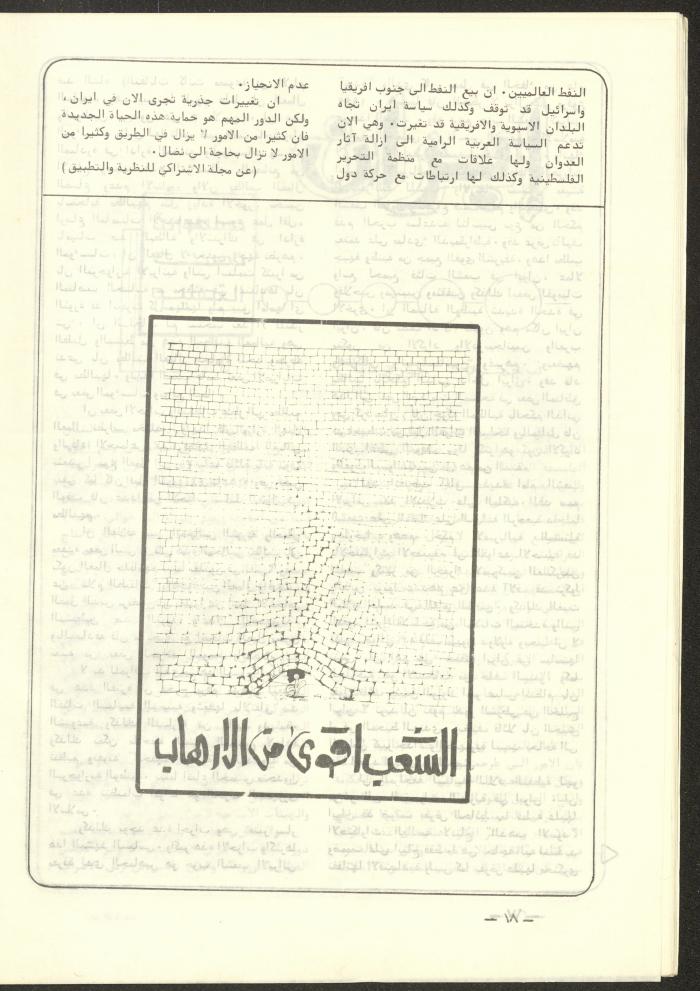 النفط العالميين. ان بيع النفط الى جنوب افريقيا
واسرائيل قد توقف وكذلك سياسة ايران تجاه
البلدان الاسيوية والافريقية قد تغيرت. وهي الان
تدعم السياسة العربية الرامية الى ازالة آثار
العدوان ولها علاقات مع منظمة التحرير
الفلسطينية وكذلك لها ارتباطات مع حركة دول
عدم الانحياز.
ان تغييرات جذرية تجرى الان في ايران،
ولكن الدور المهم هو حماية هذه الحياة الجديدة
فان كثيرا من الامور لا يزال في الطريق وكثيرا من
الامور لا تزال بحاجة الى نضال.
(عن مجلة الاشتراكي للنظرية والتطبيق)
الشعب اقوى من الارهاب
– ١٨ –